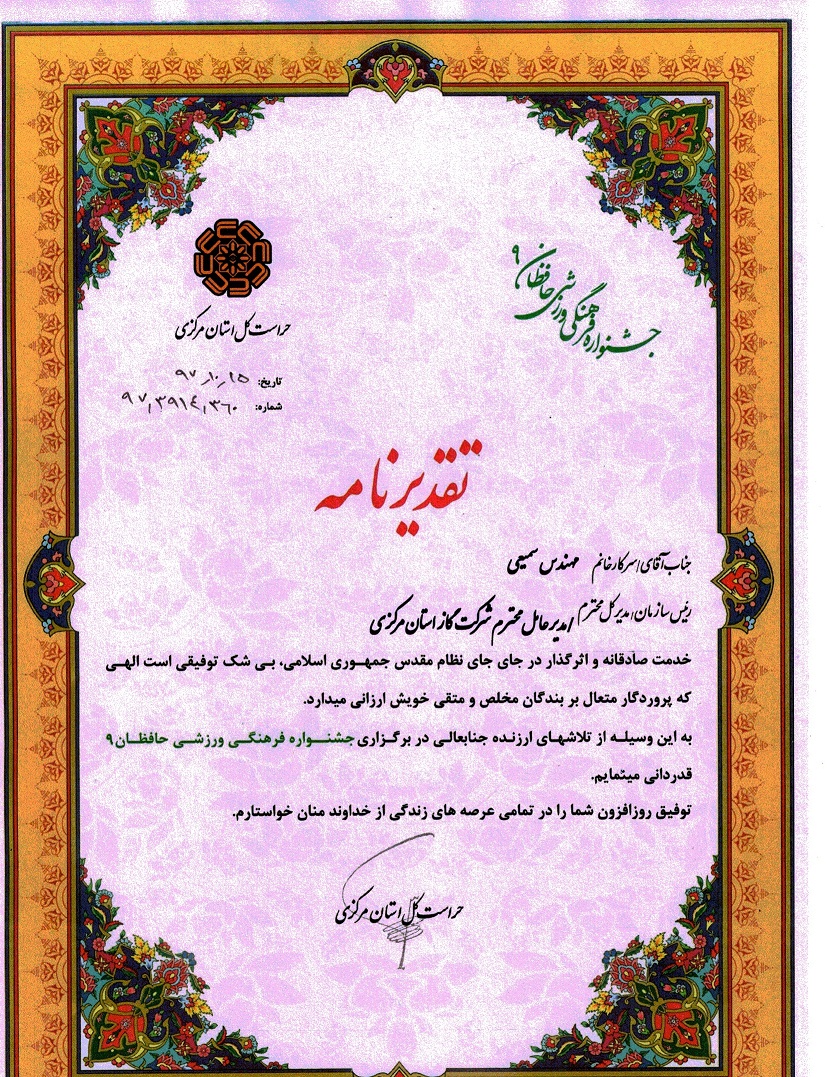 جشنواره فرهنگی ورزشی حافظان ۹
حراست کل استان مرکزی
تاریخ: ۹۷٫۱۰٫۱۵
شماره: ۹۷٫۳۹۱۴٫۳۶۰
تقدیرنامه
جناب آقای/سرکارخانم مهندس سمیعی
رئیس سازمان/مدیرکل محترم /مدیرعامل محترم شرکت گاز استان مرکزی
خدمت صادقانه و اثرگذار در جای جای نظام مقدس جمهوری اسلامی، بی شک توفیقی است الهی
که پروردگار متعال بر بندگان مخلص و متقی خویش ارزانی میدارد.
به این وسیله از تلاشهای ارزنده جنابعالی در برگزاری جشنواره فرهنگی ورزشی حافظان۹
قدردانی مینمایم.
توفیق روزافزون شما را در تمامی عرصه های زندگی از خداوند منان خواستارم.
حراست کل استان مرکزی